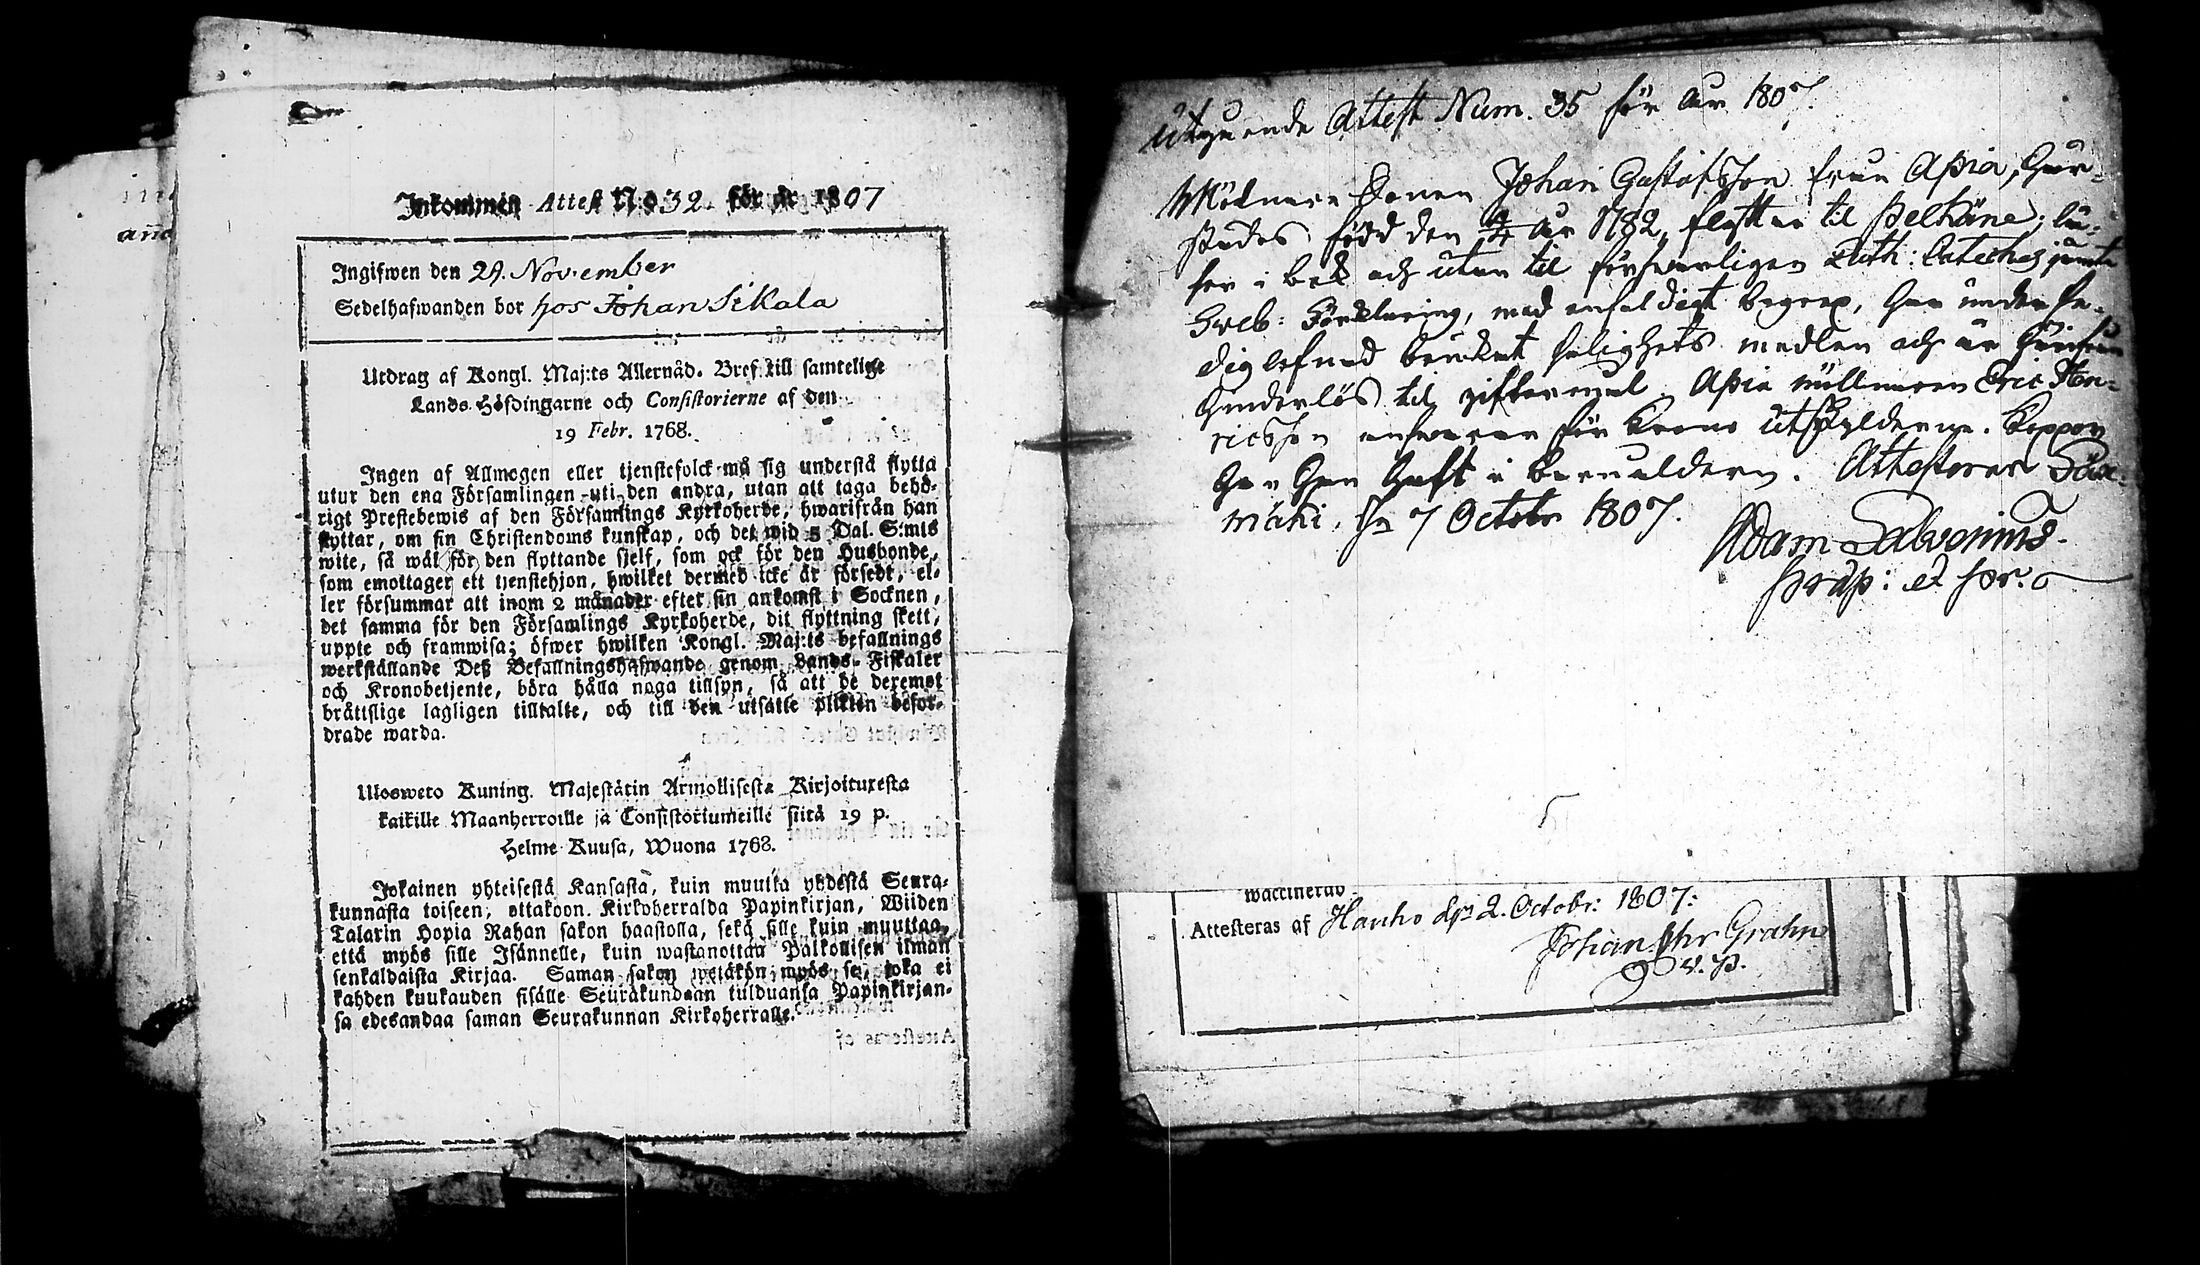 Inkommen Attest N:o 32. för år 1807
Ingifwen den 29. November
Sedelhafwanden bor hos Johan Sikala
Utdrag af Kongl. Maj:ts Allernåd. Bref till samtelige
Lands-Höfdingarne och Consistorierne af den
19 Febr. 1768.
Ingen af Allmogen eller tjenstefolck må sig understå flytta
utur den ena Församlingen uti den andra, utan att taga behö-
rigt Prestebewis af den Församlings Kyrkoherde, hwarifrån han
flyttar, om sin Christendoms kunskap, och det wid 5 Dal. S:mts
wite, så wäl för den flyttande sjelf, som ock för den Husbonde,
som emottager ett tjenstehjon, hwilket dermed icke är försedt, el-
ler försummar att inom 2 månader efter sin ankomst i Socknen,
det samma för den Församlings Kyrkoherde, dit flyttning skett,
uppte och framwisa; öfwer hwilken Kongl. Maj:ts befallnings
werkställande Deß Befallningshafwande genom Lands-Fiskaler
och Kronobetjente, böra hålla noga tillsyn, så att de deremot
bråttslige lagligen tilltalte, och till den utsatte plikten befor-
drade warda.
Ulosweto Kuning. Majestätin Armollisesta Kirjoituxesta
kaikille Maanherroille ja Consistoriumeille siitä 19 p.
Helme Kuusa, Wuona 1768.
Jokainen yhteisestä Kansasta, kuin muutta yhdestä Seura-
kunnasta toiseen, ottakoon Kirkoherralda Papinkirjan, Wiiden
Talarin Hopia Rahan sakon haastolla, sekä sille kuin muuttaa,
että myös sille Isännelle, kuin wastanottaa Palkollisen ilman
senkaldaista Kirjaa. Saman sakon wetäkön myös se, joka ei
kahden kuukauden sisälle Seurakundaan tulduansa Papinkirjan-
sa edesandaa saman Seurakunnan Kirkoherralle.
Utgående Attest Num. 35 för år 1807.
Johan Gustafsson från Apia, här-
städes född den år 1782, flyttar til Pelkäne; lä-
ser i bok och utan til försvarligen Luth: Cateches jemte
Sveb: Förklaring, med enfaldigt begrep, har under fre-
dig lefnad brukat salighets medlen och är härifrån
hinderlös til giftermål. Apia Eric Hen-
ricsson ansvarar för Krono utskylderne. Koppor
har han haft i barnaldern. Attesterar Sää-
mäki, d. 7 October 1807.
Adam Salvonius.
præp: et p:r.
waccinerad
Attesteras af Hauho d. 2. Octobr: 1807:
Johan Grahn
v. p.